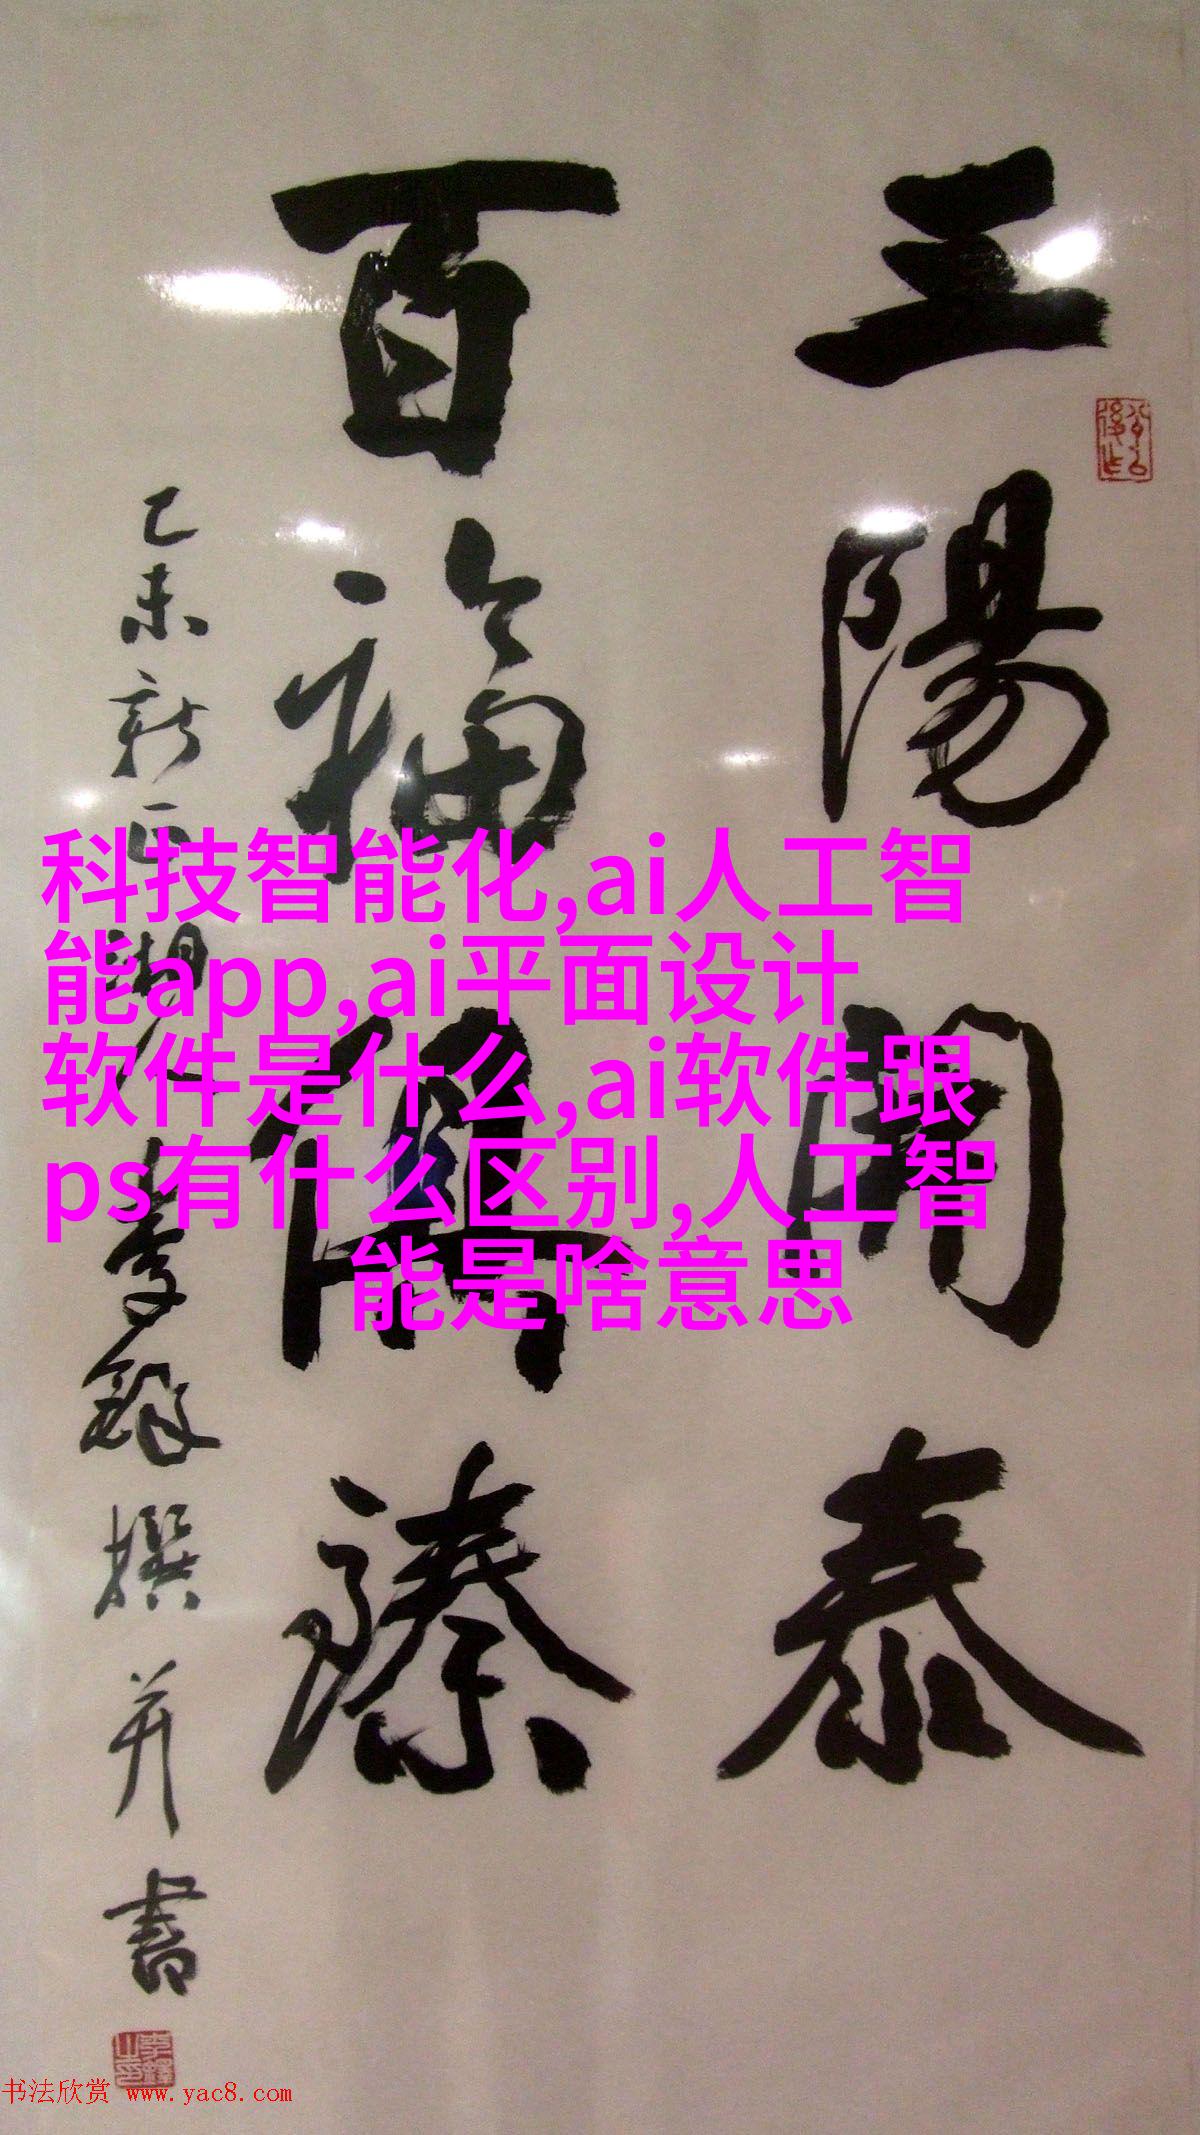 三陽開泰
百福俱臻
乙未新正湖人李鐸撰并書
科技智能化,ai人工智
能app,ai平面设计
软件是什么,ai软件跟
ps有什么区别,人工智
能是啥意思
书法欣赏 www.yac8.com